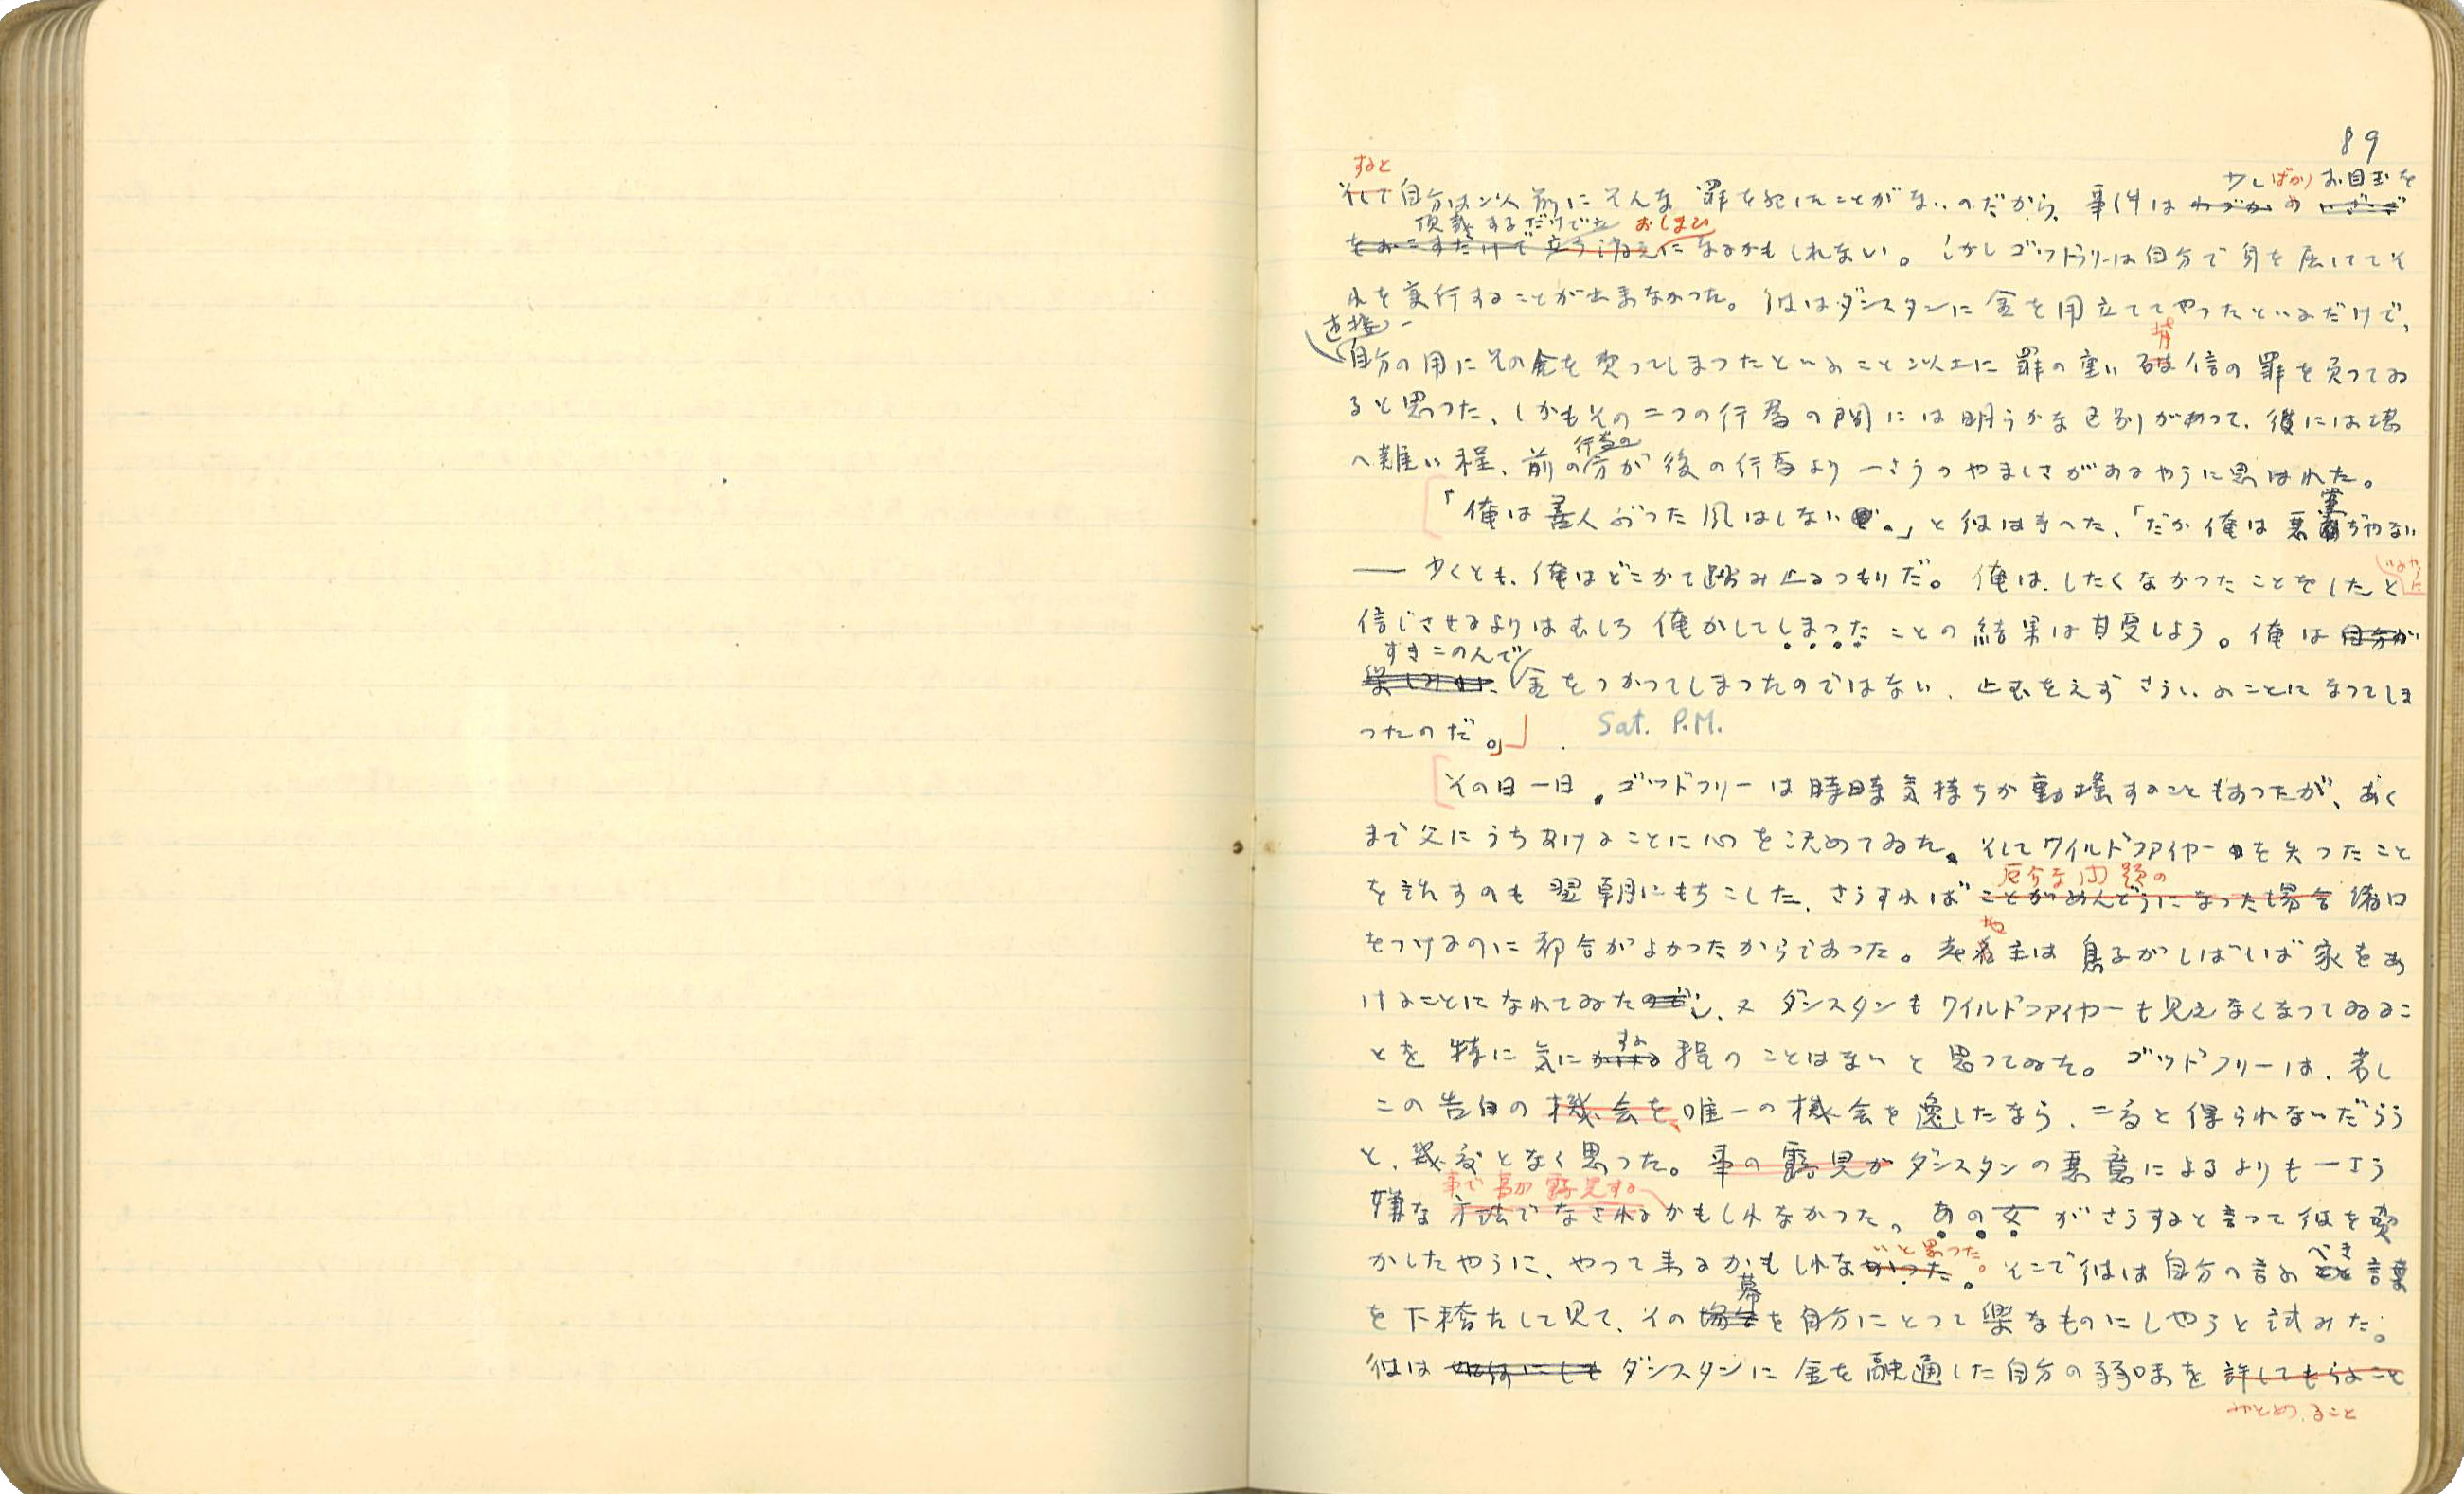 89
すると 少しばかりお目玉を
そして自分は以前にそんな罪を犯したことがないのだから、事件はわづかのいざこざ
頂戴するだけで おしまひ
をおこすだけで になるかもしれない。しかしゴッドフリーは自分で身を屈してそ
れを実行することが出来なかつた。彼はダンスタンに金を用立ててやつたといふだけで、
直接 背
自分の用にその金を使つてしまつたといふこと以上に罪の重い破信の罪を負つてゐ
ると思つた、しかもその二つの行為の間には明らかな区別があつて、彼には堪
行為の
へ難い程、前の方が後の行為より一さうのやましさがあるやうに思はれた。
「俺は善人ぶつた風はしない。」と彼は考へた、「だが俺は悪党ぢやない
── 少くとも、俺はどこかで踏み止るつもりだ。俺は、したくなかつたことをしたと
いふやうに
信じさせるよりはむしろ俺がしてしまつたことの結果は甘受しよう。俺は自分が
すきこのんで
楽しみに金をつかつてしまつたのではない、止むをえずさういふことになつてしま
つたのだ。」 Sat. P.M.
その日一日、ゴッドフリーは時時気持ちが動揺することもあつたが、あく
まで父にうちあけることに心を決めてゐた。そしてワイルドファイヤーを失つたこと
厄介な問題の
を話すのも翌朝にもちこした、さうすればことがめんどうになつた場合緒口
をつけるのに都合がよかつたからであつた。老地主は息子がしばしば家をあ
けることになれてゐたし、又ダンスタンもワイルドファイヤーも見えなくなつてゐるこ
する
とを特に気にかける程のことはないと思つてゐた。ゴッドフリーは、若し
この告白の機会を唯一の機会を逸したなら、二度と得られないだらう
と、幾度となく思つた。事の露見がダンスタンの悪意によるよりも一さう
事で事が露見する
嫌な方法でなされるかもしれなかつた。あの女がさうすると言つて彼を脅
いと思つた。 べき
かしたやうに、やつて来るかもしれなかつた。そこで彼は自分の言ふこと言葉
幕
を下稽古して見て、その場合を自分にとつて楽なものにしやうと試みた。
彼は如何にしてもダンスタンに金を融通した自分の弱味を許してもらふこと
みとめること